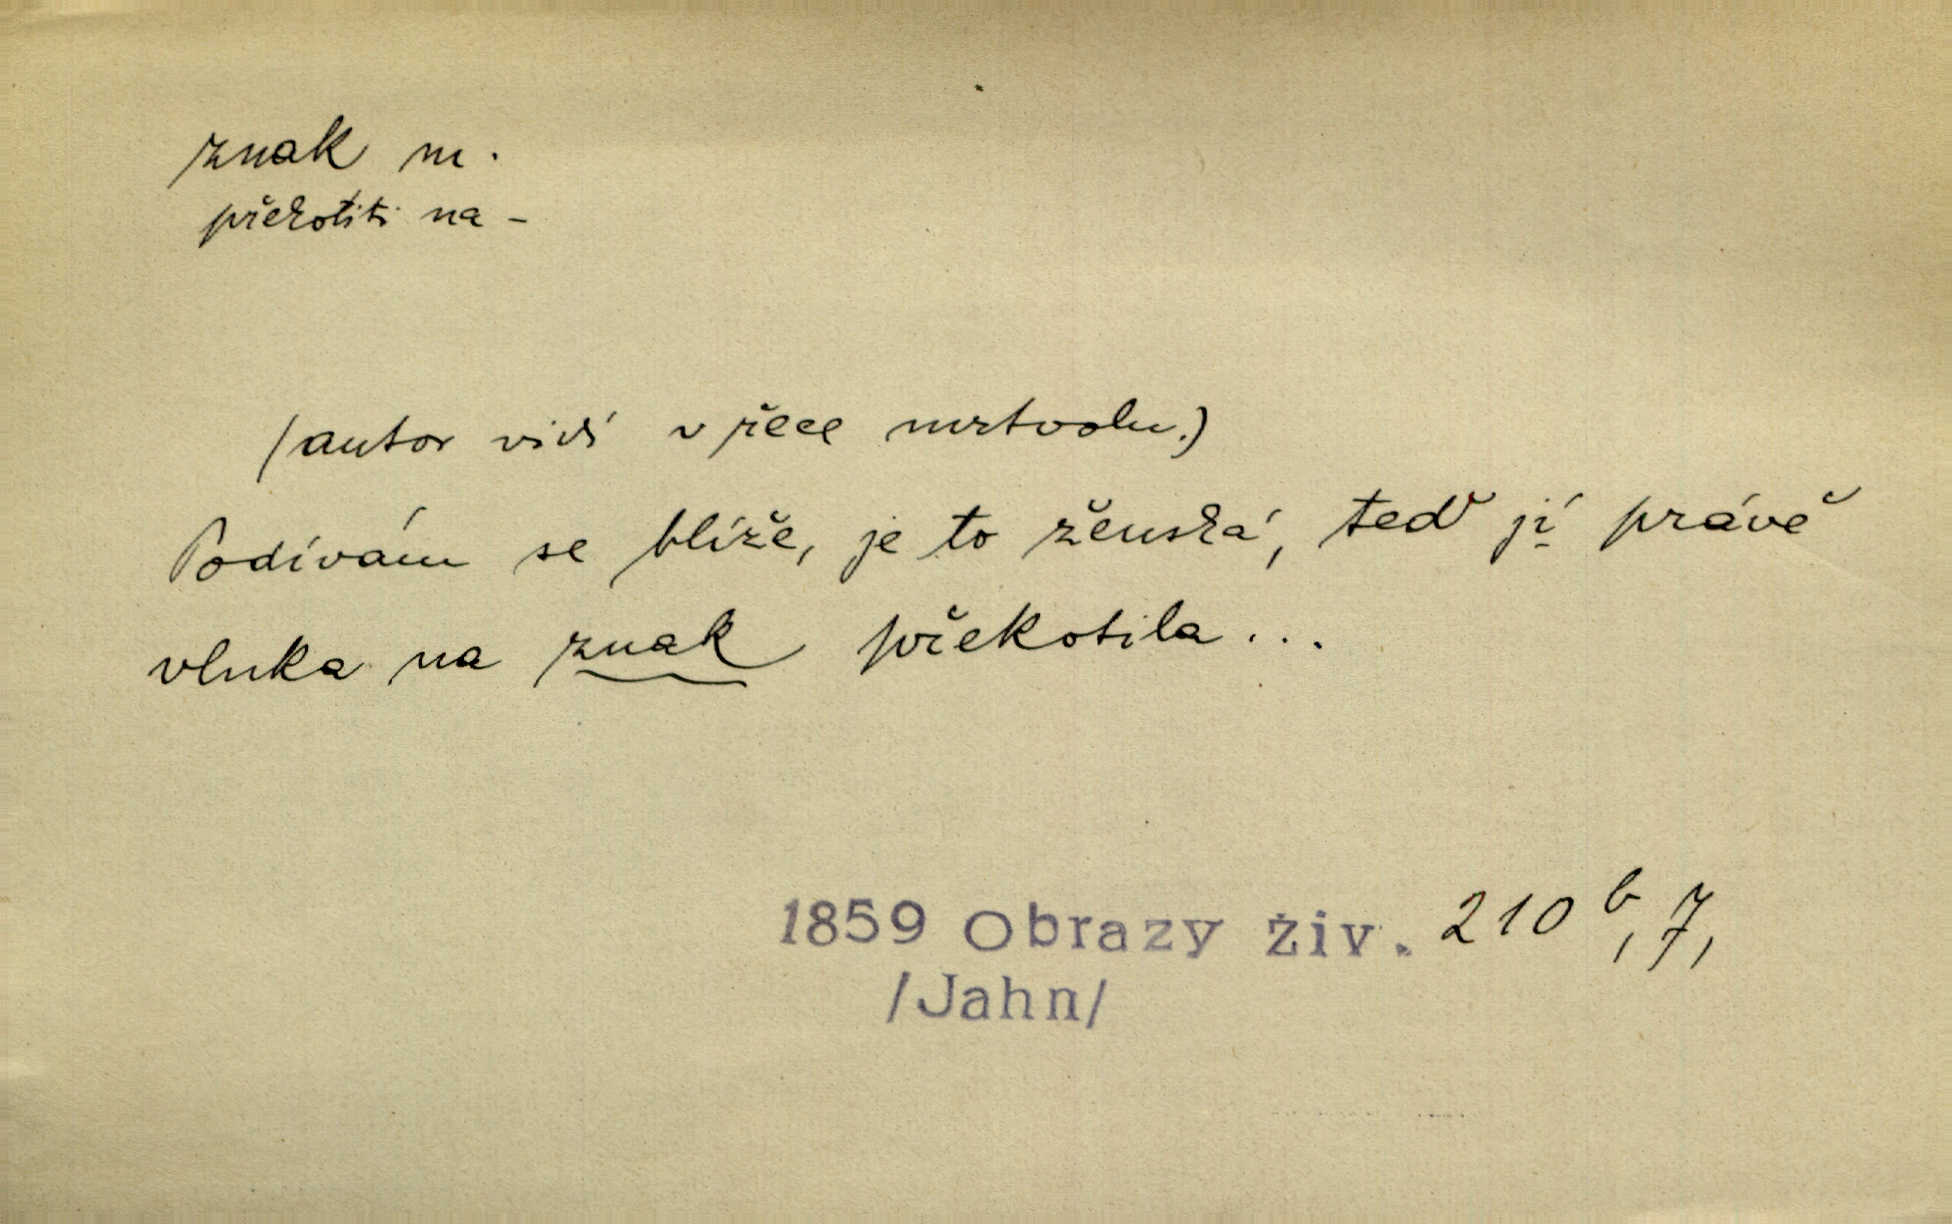 znak m.
překotiti na -
(autor vidí v řece mrtvolu.)
Podívám se blíže, je to ženská, teď jí právě
vlnka na znak překotila...
1859 Obrazy živ. 210 b, 7,
/Jahn/